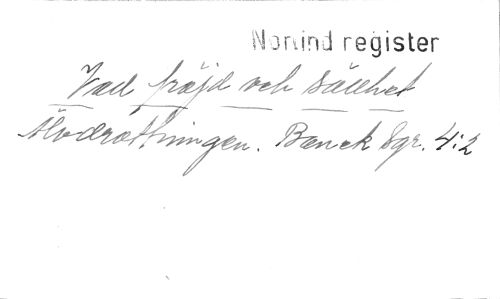 Norlind register
Vad fröjd och sällhet
Älvdrottningen. Bænck Sgr. 4:2